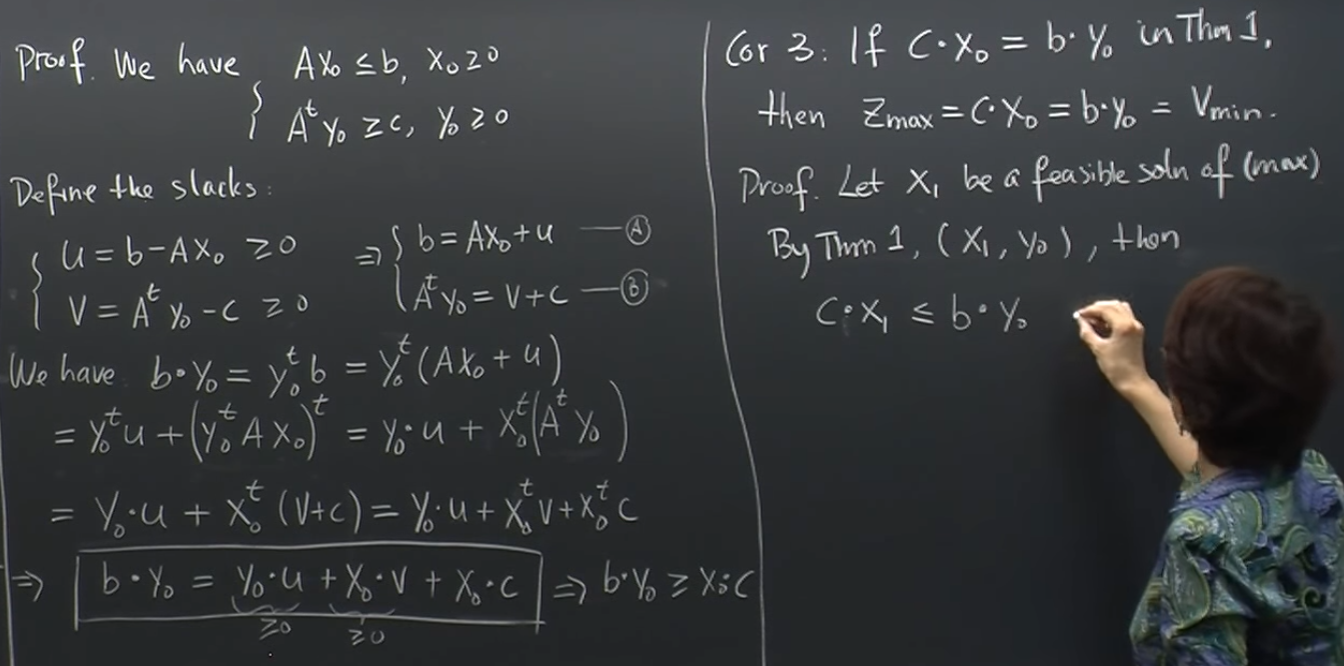 Proof. We have { Ax₀ ≤ b, x₀ ≥ 0
Aᵗy₀ ≥ c, y₀ ≥ 0
Define the slacks:
{ u = b - Ax₀ ≥ 0 ⇒ { b = Ax₀ + u — Ⓐ
v = Aᵗy₀ - c ≥ 0 Aᵗy₀ = v + c — Ⓑ
We have b·y₀ = y₀ᵗb = y₀ᵗ(Ax₀ + u)
= y₀ᵗu + (y₀ᵗAx₀)ᵗ = y₀·u + x₀ᵗ(Aᵗy₀)
= y₀·u + x₀ᵗ(v+c) = y₀·u + x₀ᵗv + x₀ᵗc
⇒ b·y₀ = y₀·u + x₀·v + x₀·c ⇒ b·y₀ ≥ x₀·c
≥0 ≥0
Cor 3: If c·x₀ = b·y₀ in Thm 1,
then Zmax = c·x₀ = b·y₀ = Vmin.
Proof. Let x₁ be a feasible soln of (max)
By Thm 1, (x₁, y₀), then
c·x₁ ≤ b·y₀